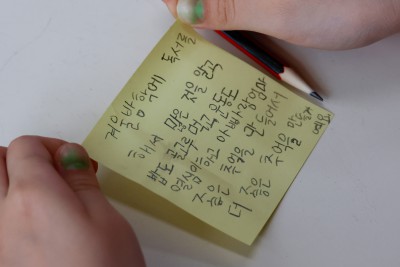 겨울방학에 독서를
해서 많은 것을 알고
밥도 골고루 먹고 운동도
열심히 하고 아빠랑엄마
좋은 추억을 만들어서
더 좋은 추억을